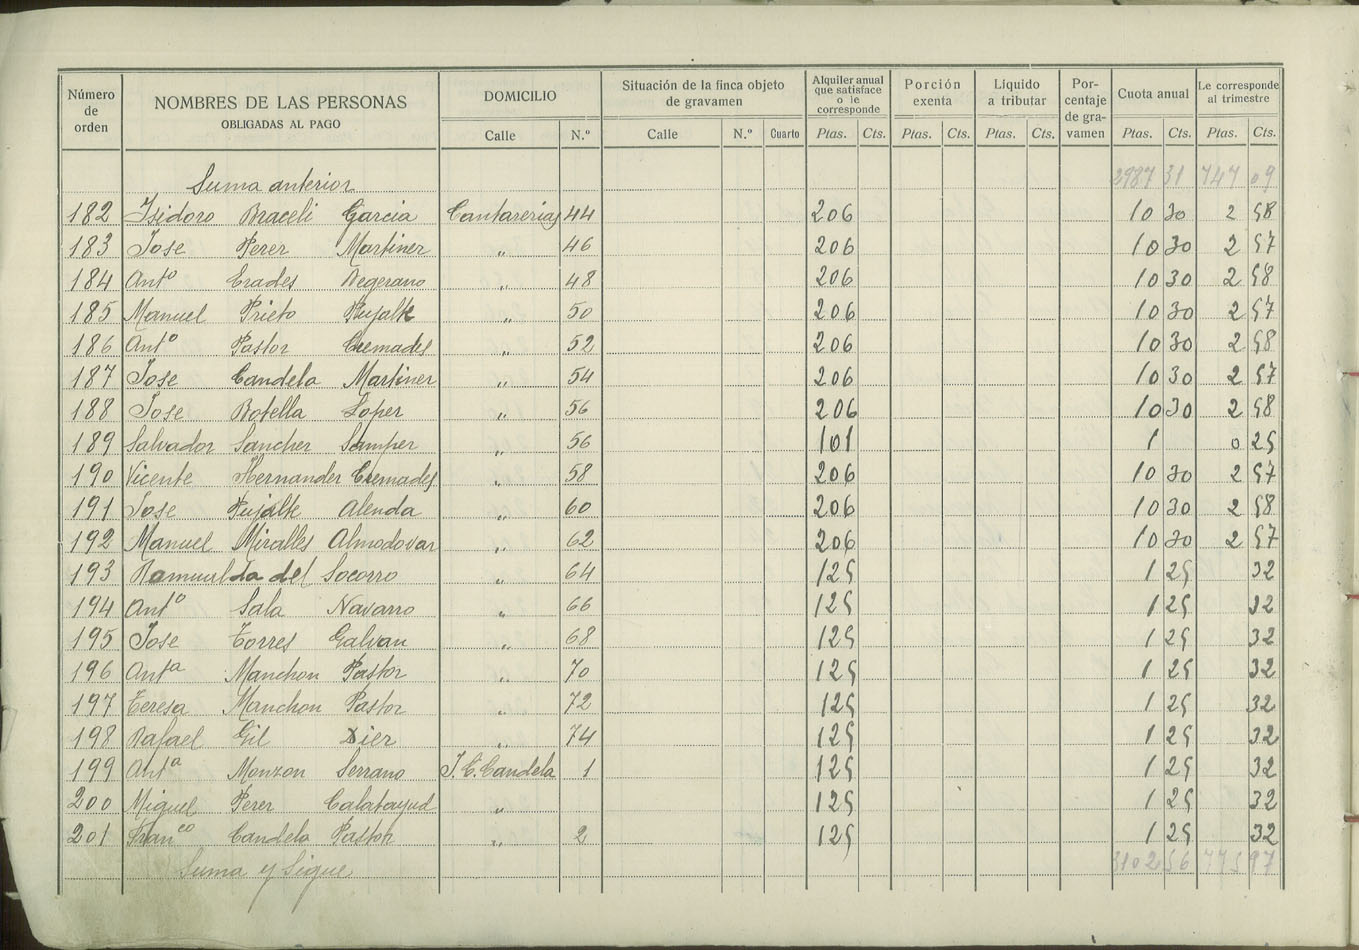 Número de orden NOMBRES DE LAS PERSONAS OBLIGADAS AL PAGO DOMICILIO Situación de la finca objeto de gravamen Alquiler anual que satisface o le corresponde Porción exenta Líquido a tributar Por-centaje de gra-vamen Cuota anual Le corresponde al trimestre
Calle N.º Calle N.º Cuarto Ptas. Cts. Ptas. Cts. Ptas. Cts. Ptas. Cts. Ptas. Cts.
Suma anterior 2987 31 747 09
182 Isidoro Braceli Garcia Cantarerias 44 206 10 30 2 58
183 Jose Perer Martiner " 46 206 10 30 2 57
184 Antº Erades Degerano " 48 206 10 30 2 58
185 Manuel Prieto Pujalte " 50 206 10 30 2 57
186 Antº Pastor Cremades " 52 206 10 30 2 58
187 Jose Candela Martiner " 54 206 10 30 2 57
188 Jose Botella Loper " 56 206 10 30 2 58
189 Salvador Sancher Samper " 56 101 1 0 25
190 Vicente Hernander Cremades " 58 206 10 30 2 57
191 Jose Pujalte Alenda " 60 206 10 30 2 58
192 Manuel Miralles Almodovar " 62 206 10 30 2 57
193 Romualda del Socorro " 64 125 1 25 32
194 Antº Sala Navarro " 66 125 1 25 32
195 Jose Torres Galvan " 68 125 1 25 32
196 Antª Manchon Pastor " 70 125 1 25 32
197 Teresa Manchon Pastor " 72 125 1 25 32
198 Rafael Gil Dier " 74 125 1 25 32
199 Antª Monzon Serrano J. C. Candela 1 125 1 25 32
200 Miguel Perer Calatayud " 125 1 25 32
201 Franco Candela Pastor " 2 125 1 25 32
Suma y Sigue 3102 56 775 97